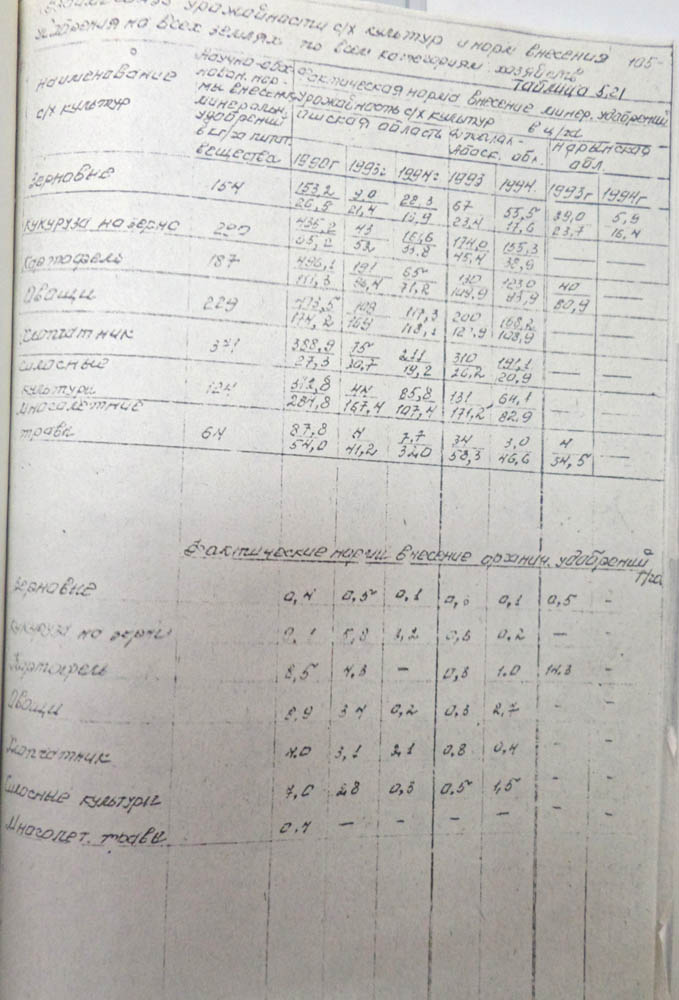 урожайности с/х культур и норм внесения 105
удобрения на всех землях по всем категориям хозяйств
Таблица 5,21
Наименование с/х культур
Научно-обоснован. нормы внесения минеральн. удобрений в кг/га питат. вещества
Фактическая норма внесение минер. удобрений
урожайность с/х культур в ц/га
Ошская область Джалал-Абаск. обл. Нарынская обл.
1990г 1993г 1994г 1993 1994 1993г 1994г
Зерновые 154 153,2 9,0 28,3 67 53,5 39,0 5,9
26,5 21,4 19,9 23,4 17,6 23,7 16,4
Кукуруза на зерно 43 174,0 155,3 — —
52 45,4 32,9
Картофель 187 496,1 191 65 130 123,0 40 —
111,3 71,2 80,9
Овощи 229 473,5 109 117,3 200 168,2 —
174,2 169 118,1 108,9
Хлопчатник 371 388,9 75 211 310 191,1 — —
27,3 30,7 19,2 26,2 20,9
Силосные
культури 124 312,8 44 85,8 131 64,1 — —
284,8 167,4 107,4 171,2 82,9
Многолетние
трави 64 87,8 4 7,7 34 3,0 4 —
54,0 41,2 32,0 58,3 46,6 34,5
Фактические норми внесение органич. удобрений
т/га
Зерновые 0,4 0,5 0,1 0,1 0,5 -
Кукуруза на зерно 5,8 0,2 — -
Картофель 8,5 4,3 — 0,3 1,0 14,3 -
Овощи 8,9 3,4 0,2 0,3 2,7 - -
Хлопчатник 4,0 3,1 2,1 0,8 0,4 - -
Силосные культуры 7,0 2,8 0,3 0,5 1,5 - -
Многолет. трави 0,4 — — - - - -